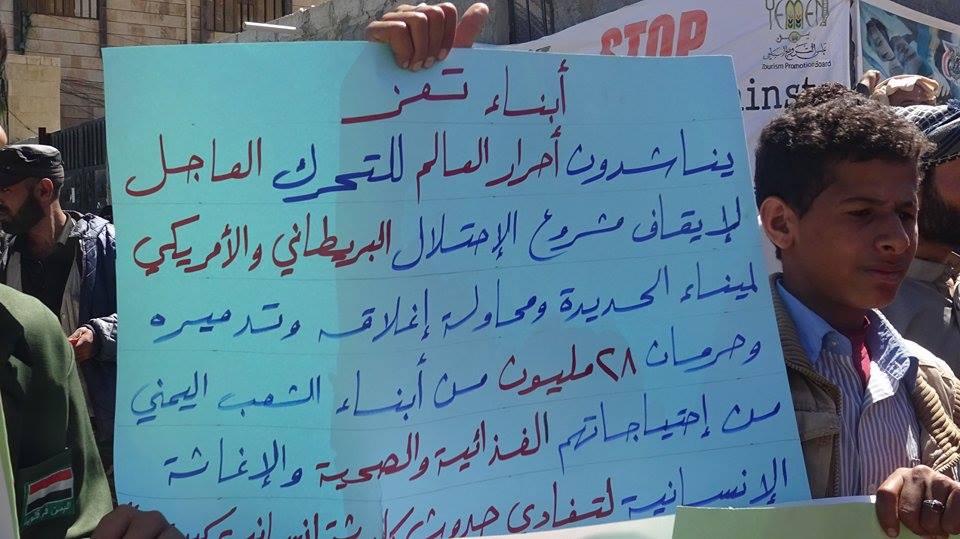 STOP
YEMEN
يمن
Tourism Promotion Board
ainst
أبناء تعز
يناشدون أحرار العالم للتحرك العاجل
لإيقاف مشروع الإحتلال البريطاني والأمريكي
لميناء الحديدة ومحاولة إغلاقه وتدميره
وحرمان ٢٨ مليون من أبناء الشعب اليمني
من إحتياجاتهم الغذائية والصحية والإغاثة
الإنسانية لتفادي حدوث كارثة إنسانية